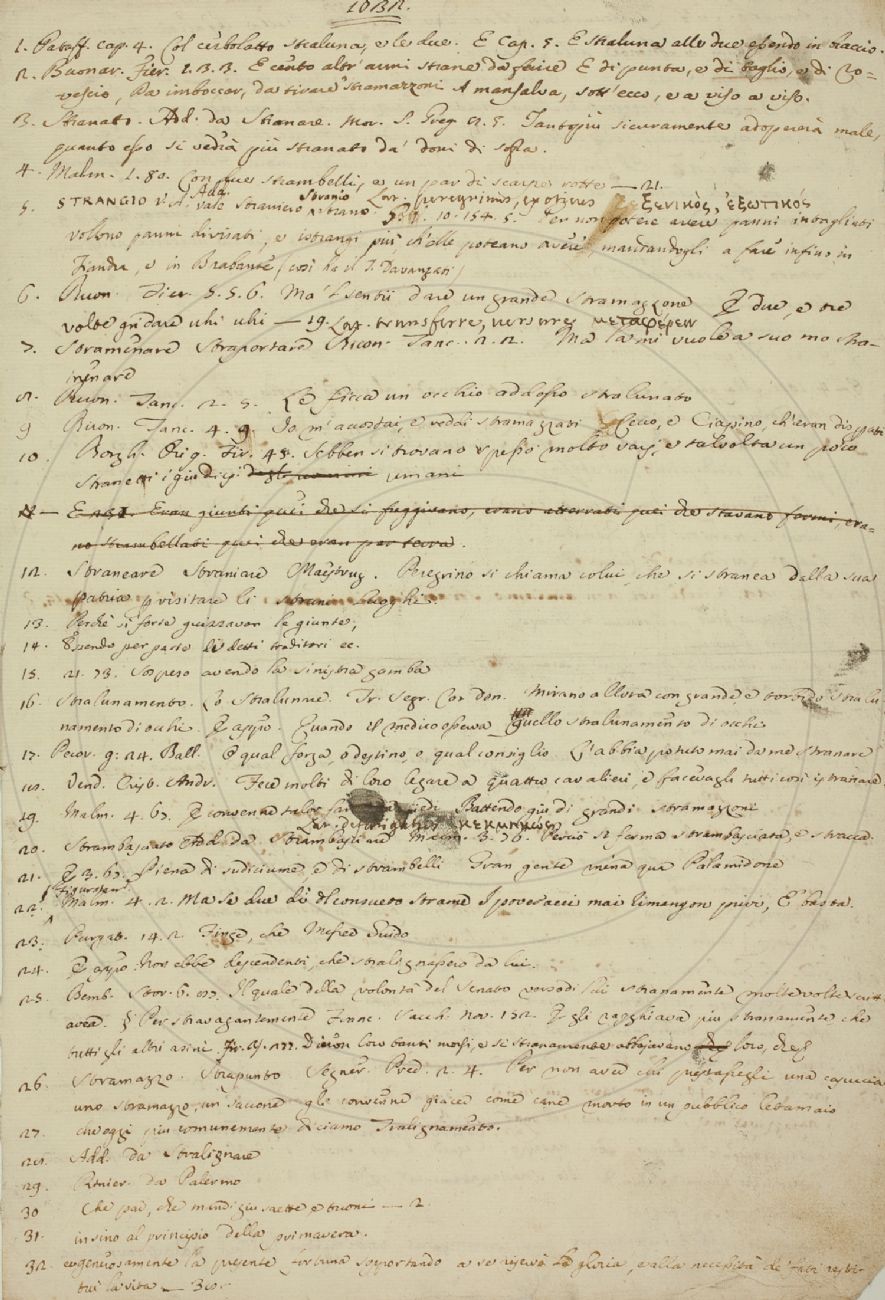 1. Pataff. cap. 4. Col cerbolatto straluna, e le due. E Cap. 5. E straluna alle due essendo in braccio.
2. Buonar. Fier. 1. 3. 3. E cento altr'armi strane da ferire E di punta, e di taglio, e di ro-
vescio, Da imboccar, da tirare stramazzoni A mansalva, sott'ecco, e a viso a viso.
3. Stranato. Add. da Stranare. Mor. S. Greg. Tantopiù sicuramente adopererà male,
quanto esso si vedrà più stranato da' doni di sopra.
4. Malm. 1. 80. Con due strambelli, e un par di scarpe rotte — 21.
5. STRANGIO Add. vale Straniero strano Stranio Lat. peregrinus, exoticus ξενικός, ἐξωτικός
10. 154. 5. Per non potere avere panni intagliati
vollono panni divisati, e istrangi più ch'elle poteano avere, mandandogli a fare infino in
Fiandra, e in Brabante (così ha il T. Davanzati)
6. Buon. Fier. 5. 5. 6. Ma' l sentii dare un grande stramazzone E due, e tre
volte gridare uhi uhi — 19. Lat. transferre, μεταφέρειν
7. Stramenare Straportare Buon. Tanc. 2. 2. Ma la mi vuole a suo mo stra-
menare
8. Buon. Tanc. 2. 5. Le ficca un occhio addosso stralunato
9 Buon. Tanc. 4. 9. Io m'accostai, e veddi stramazzati Cecco, e Ciapino, ch'eran disperati
10. Borgh. Orig. Fir. 48. Sebben si trovano spesso molto varj, e talvolta un poco
stranetti i giudizj degli uomini umani
— E Eran giunti quei che si fuggivano, erano atterrati quei che stavano fermi, era-
no strambellati quei che eran per terra.
12. Straneare Straniare Maestruz. Peregrino si chiama colui, che si stranea dalla sua
patria p visitare li strani luoghi.
13. Perchè sì forte guizzavan le giunte,
14. Essendo per parte di detti traditori ec.
15. 21. 73. Sospeso avendo la sinistra gamba
16. Stralunamento. Lo Stralunare. Tr. Segr. Cor don. Mirano allora con grande e orrendo stralu-
namento di occhi. E appo. Quando il medico osserva quello stralunamento di occhi
17. Pecor. g. 24. Ball. E qual forza, o destino, o qual consiglio L'abbia potuto mai da me stranare
18. Vend. Crist. Andr. Fece molti di loro legare a quattro cavalieri, e facevagli tutti così istrattare.
19. Malm. 4. 67. E convenne talor Sbattendo giù di grandi stramazzoni
20. Strambasciato Add. da Strambasciare Lat. defatigatus κεκμηκώς Malm. 3. 76. Perciò si ferma strambasciata, e stracca
21. E 3. 67. Piena di sudiciume, e di strambelli Gran gente mena qua Palamidone
22. § Figuratam. Malm. 4. 2. Ma se due dì del consueto strame I poveracci mai rimangon privi, E' basta.
23. Purgat. 14. 2. Finge, che Messer Guido
24. E appo Non ebbe descendenti, che stralignassero da lui.
25. Bemb. Stor. 6. 87. Il quale della volontà del Senato verso di lui stranamente molte volte scritt.
avea. § Per stravagantemente Franc. Sacch. nov. 132. E gli ragghiava più stranamente che
tutti gli altri asini loro tanti morsi, e sì stranamente abbajavano loro, che
26. Stramazzo. Strapunto Segner. Pred. 2. 4. Per non aver chi prestassegli una casuccia
uno stramazzo, un saccone gli convenne giacer come cane morto in un pubblico letamaio
27. che oggi più comunemente diciamo Tralignamento.
28. Add. da Stralignare
29. Rinier. da Palermo
30 Che par, che mandi giù saette e tuoni — 2.
31. insino al principio della primavera.
32. e generosamente la presente fortuna sopportando a se riserva la gloria, e alla necessità de' fati resti-
tuì la vita — 30.